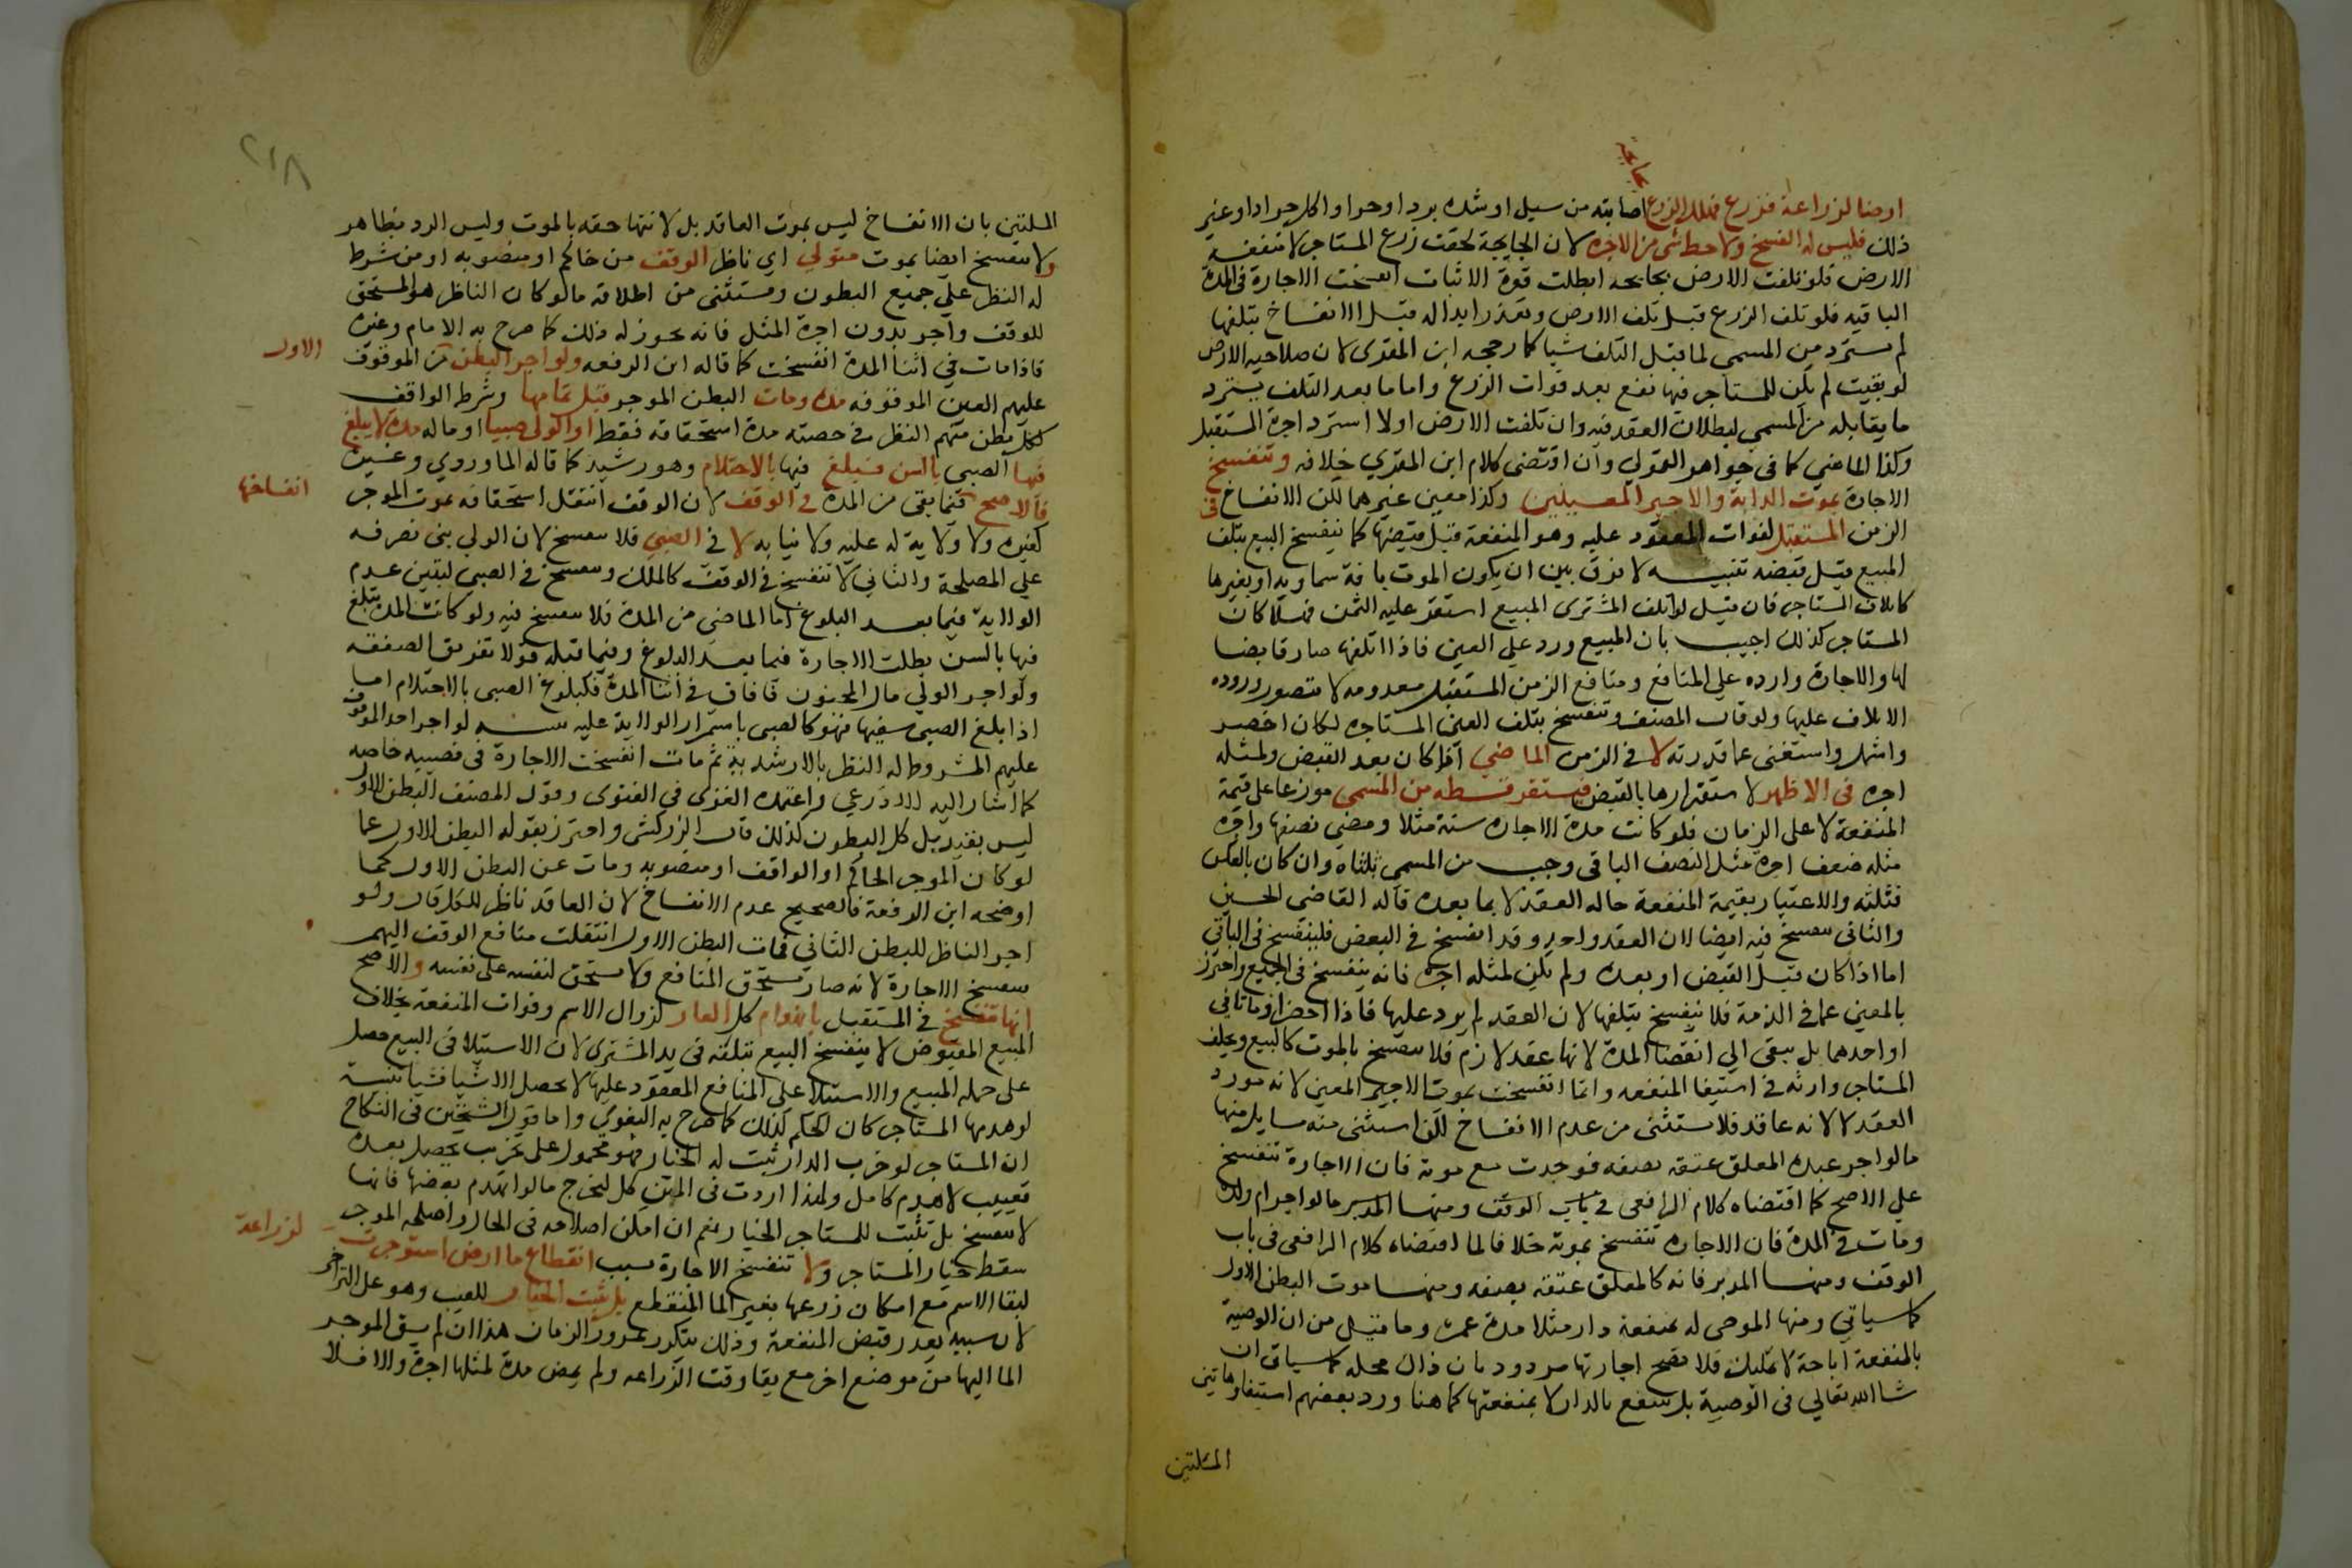 بجايحة
ارضا لزراعة فزرع فهلك الزرع اصابته من سيل او شدة برد او حر او اكل جراد او غير
ذلك فليس له الفسخ ولا حط شي من الاجرة لان الجايحة لحقت زرع المستاجر لا منفعة
الارض فلو تلفت الارض بجايحه ابطلت قوة الانبات انفسخت الاجارة في المدة
الباقيه فلو تلف الزرع قبل تلف الارض وتعذر ابداله قبل الانفساخ بتلفها
لم يسترد من المسمى لما قبل التلف شيا كما رجحه ابن المقري لان صلاحية الارض
لو بقيت لم يكن للمستاجر فيها نفع بعد فوات الزرع واما ما بعد التلف يسترد
ما يقابله من المسمى لبطلان العقد فيه وان تلفت الارض اولا استرد اجرة المستقبل
وكذا الماضي كما في جواهر القمولي وان اقتضى كلام ابن المقري خلافه وتنفسخ
الاجارة بموت الدابة والاجير المعينين وكذا معين غيرهما لكن الانفساخ في
الزمن المستقبل لفوات المعقود عليه وهو المنفعة قبل قبضها كما ينفسخ البيع بتلف
المبيع قبل قبضه تنبيه لا فرق بين ان يكون الموت بافة سماوية او بغيرها
كاتلاف المستاجر فان قيل لو اتلف المشترى المبيع استقر عليه الثمن فهلا كان
المستاجر كذلك اجيب بان المبيع ورد على العين فاذا اتلفها صار قابضا
لها والاجارة وارده على المنافع ومنافع الزمن المستقبل معدومه لا يتصور وروده
الاتلاف عليها ولو قال المصنف وتنفسخ بتلف العين المستاجره لكان اخصر
واشمل واستغنى عما قدرته لا في الزمن الماضي اذا كان بعد القبض ولمثله
اجره في الاظهر لاستقرارها بالقبض فيستقر قسطه من المسمى موزعا على قيمة
المنفعة لا على الزمان فلو كانت مدة الاجاره سنة مثلا ومضى نصفها واجرة
مثله ضعف اجرة مثل النصف الباقي وجب من المسمى ثلثاه وان كان بالعكس
فثلثه والاعتبار بقيمة المنفعة حاله العقد لا بما بعده قاله القاضي الحسين
والثاني ينفسخ فيه ايضا لان العقد واحد وقد انفسخ في البعض فلينفسخ في الباقي
اما اذا كان قبل القبض او بعده ولم يكن لمثله اجرة فانه ينفسخ في الجميع واحترز
بالمعين عما في الذمة فلا ينفسخ بتلفها لان العقد لم يرد عليها فاذا احضر او ماتا في
او احدهما بل يبقى الى انقضا المدة لانها عقد لازم فلا ينفسخ بالموت كالبيع ويخلف
المستاجر وارثه في استيفا المنفعه وانما انفسخت بموت الاجير المعين لانه مورد
العقد لا لانه عاقد فلا يستثنى من عدم الانفساخ لكن استثنى منه مسايل منها
ما لو اجر عبده المعلق عتقه بصفه فوجدت مع موته فان الاجارة تنفسخ
على الاصح كما اقتضاه كلام الرافعي في باب الوقف ومنها المدبر ما لو اجر ام ولده
ومات في المدة فان الاجاره تنفسخ بموته خلافا لما اقتضاه كلام الرافعي في باب
الوقف ومنها المدبر فانه كالمعلق عتقه بصفه ومنها موت البطن الاول
كما سياتي ومنها الموصى له بمنفعة دار مثلا مدة عمره وما قيل من ان الوصية
بالمنفعة اباحة لا تمليك فلا تصح اجارتها مردود بان ذاك محله كما سياتي ان
شا الله تعالى في الوصية بل ينتفع بالدار لا بمنفعتها كما هنا ورد بعضهم استثنا هاتين
المسلتين
٢١٨
المسلتين بان الانفساخ ليس بموت العاقد بل لانتها حقه بالموت وليس الرد بظاهر
ولا تنفسخ ايضا بموت متولي اي ناظر الوقف من حاكم او منصوبه او من شرط
له النظر على جميع البطون ويستثنى من اطلاقه ما لو كان الناظر هو المستحق
للوقف واجر بدون اجرة المثل فانه يجوز له ذلك كما صرح به الامام وغيره
فاذا مات في اثنا المدة انفسخت كما قاله ابن الرفعه ولو اجر البطن من الموقوف
الاول
عليهم العين الموقوفه مدة ومات البطن الموجر قبل تمامها وشرط الواقف
لكل بطن منهم النظر في حصته مدة استحقاقه فقط او الولي صبيا او ماله مدة لا يبلغ
فيها الصبي بالسن فبلغ فيها بالاحتلام وهو رشيد كما قاله الماوردي وغيره
انفساخها
فالاصح فيما بقي من المدة في الوقف لان الوقف انتقل استحقاقه بموت الموجر
لغيره ولا ولاية له عليه ولا نيابه لا في الصبي فلا تنفسخ لان الولي بنى تصرفه
على المصلحة والثاني لا تنفسخ في الوقف كالملك وتنفسخ في الصبي لتبين عدم
الولاية فيما بعد البلوغ اما الماضي من المدة فلا تنفسخ فيه ولو كانت المدة يبلغ
فيها بالسن بطلت الاجارة فيما بعد البلوغ وفيما قبله قولا تفريق الصفقه
ولو اجر الولي مال المجنون فافاق في اثنا المدة فكبلوغ الصبي بالاحتلام اما
اذا بلغ الصبي سفيها فهو كالصبي باستمرار الولاية عليه تنبيه لو اجر احد الموقوف
عليهم المشروط له النظر بالارشدية ثم مات انفسخت الاجارة في نصيبه خاصه
كما اشار اليه الاذرعي واعتمده الغزى في الفتوى وقول المصنف البطن الاول
ليس بقيد بل كل البطون كذلك قال الزركشي واحترز بقوله البطن الاول عما
لو كان الموجر الحاكم او الواقف او منصوبه ومات عن البطن الاول كما
اوضحه ابن الرفعة فالصحيح عدم الانفساخ لان العاقد ناظر للكل قال ولو
اجر الناظر للبطن الثاني فمات البطن الاول انتقلت منافع الوقف اليهم
تنفسخ الاجارة لانه صار مستحق المنافع ولا يستحق لنفسه على نفسه والاصح
انها تنفسخ في المستقبل بانهدام كل الدار لزوال الاسم وفوات المنفعة بخلاف
المبيع المقبوض لا ينفسخ البيع بتلفه في يد المشتري لان الاستيلا في البيع حصل
على جملة المبيع والاستيلا على المنافع المعقود عليها لا يحصل الا شيا فشيا تنبيه
لو هدمها المستاجر كان الحكم كذلك كما صرح به البغوي واما قول الشيخين في النكاح
ان المستاجر لو خرب الدار ثبت له الخيار فهو محمول على تخريب يحصل بعده
تعييب لا هدم كامل ولهذا اردت في المتن كل ليخرج ما لو انهدم بعضها فانها
لا تنفسخ بل تثبت للمستاجر الخيار نعم ان امكن اصلاحه في الحال واصلحه الموجر
سقط خيار المستاجر ولا تنفسخ الاجارة بسبب انقطاع ما ارض استوجرت
لزراعة
لبقا الاسم مع امكان زرعها بغير الما المنقطع بل يثبت الخيار للعيب وهو على التراخي
لان سببه تعذر قبض المنفعة وذلك يتكرر بمرور الزمان هذا ان لم يسق الموجر
الما اليها من موضع اخر مع بقا وقت الزراعه ولم يمض مدة لمثلها اجرة والا فلا